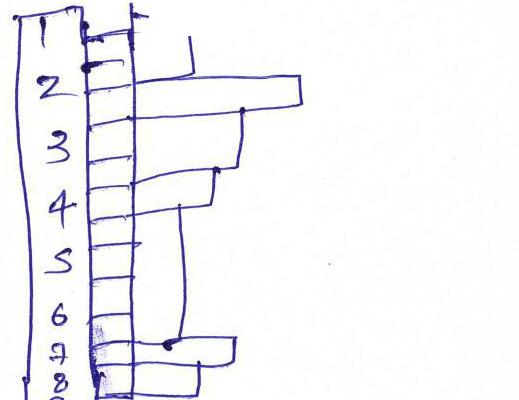 1
2
3
4
5
6
7
8